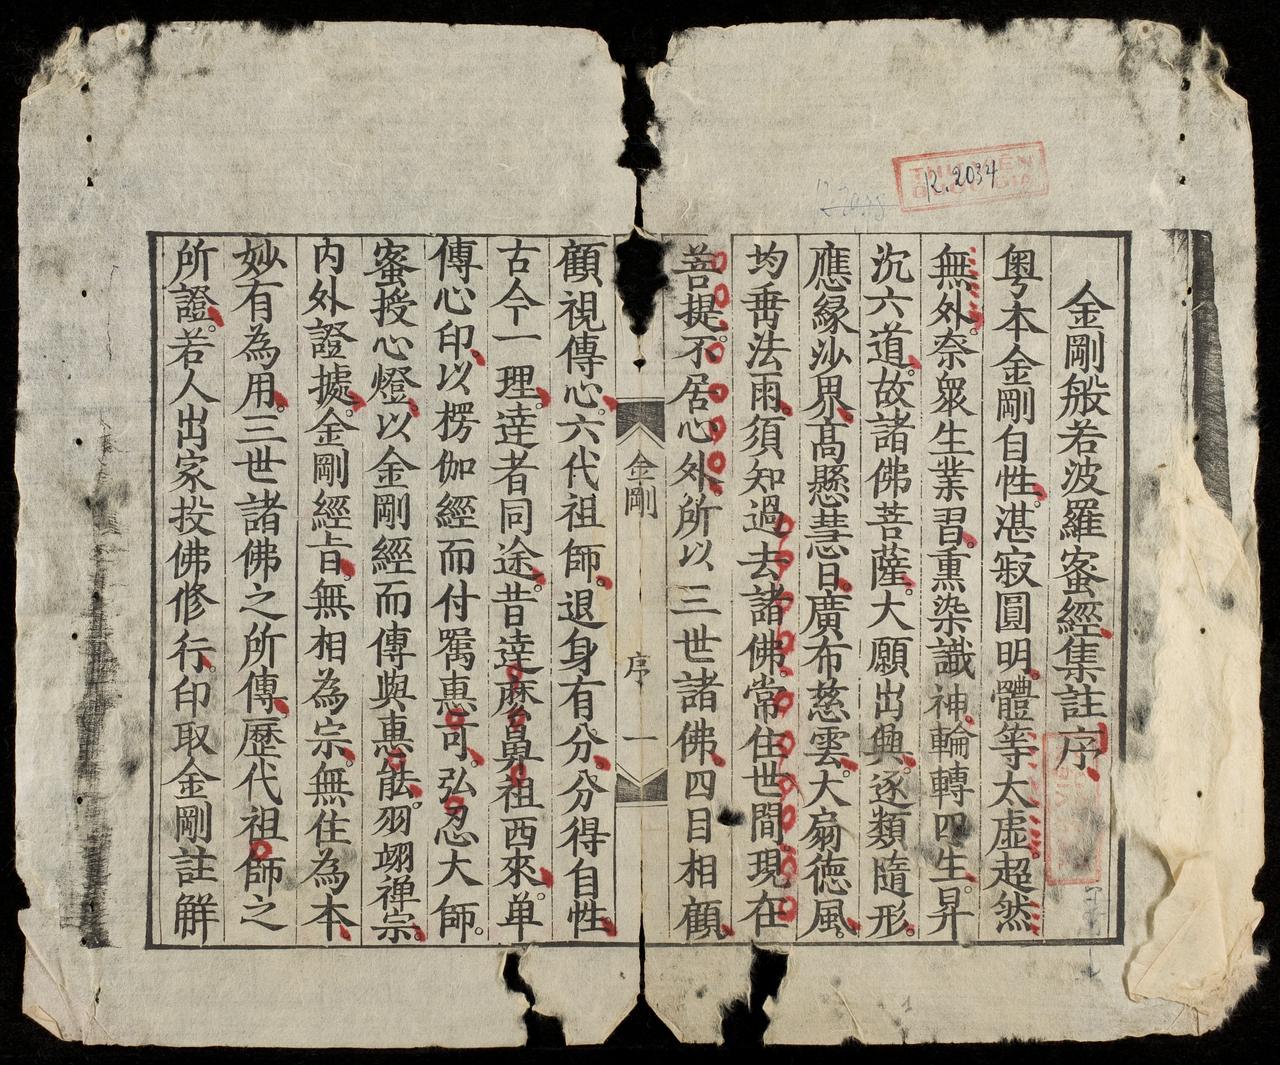 金剛般若波羅蜜經集註序
粵本金剛自性。湛寂圓明。體等太虛。超然
無外。奈衆生業習。熏染識神。輪轉四生。昇
沉六道。故諸佛菩薩。大願出興。逐類隨形。
應緣沙界。高懸慧日。廣布慈雲。大扇德風。
均垂法雨。須知過去諸佛。常住世間。現在
菩提。不居心外。所以三世諸佛。四目相顧。
金剛
序
一
顧視傳心。六代祖師。退身有分。分得自性。
古今一理。達者同途。昔達麽鼻祖西來。单
傳心印。以楞伽經而付嘱惠可。弘忍大師。
蜜授心燈。以金剛經而傳與惠能。羽翊禅宗。
内外證據。金剛經旨。無相為宗。無住為本。
妙有為用。三世諸佛之所傳。歷代祖師之
所證。若人出家投佛修行。印取金剛註解
THƯ VIỆN
QUỐC GIA
R.2034